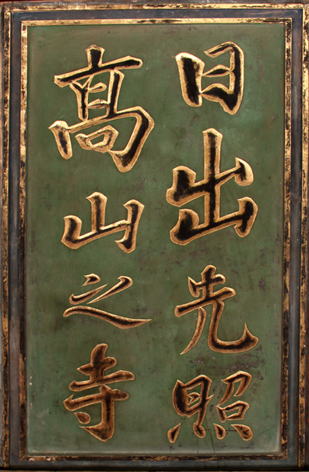 日出光照
髙山之寺